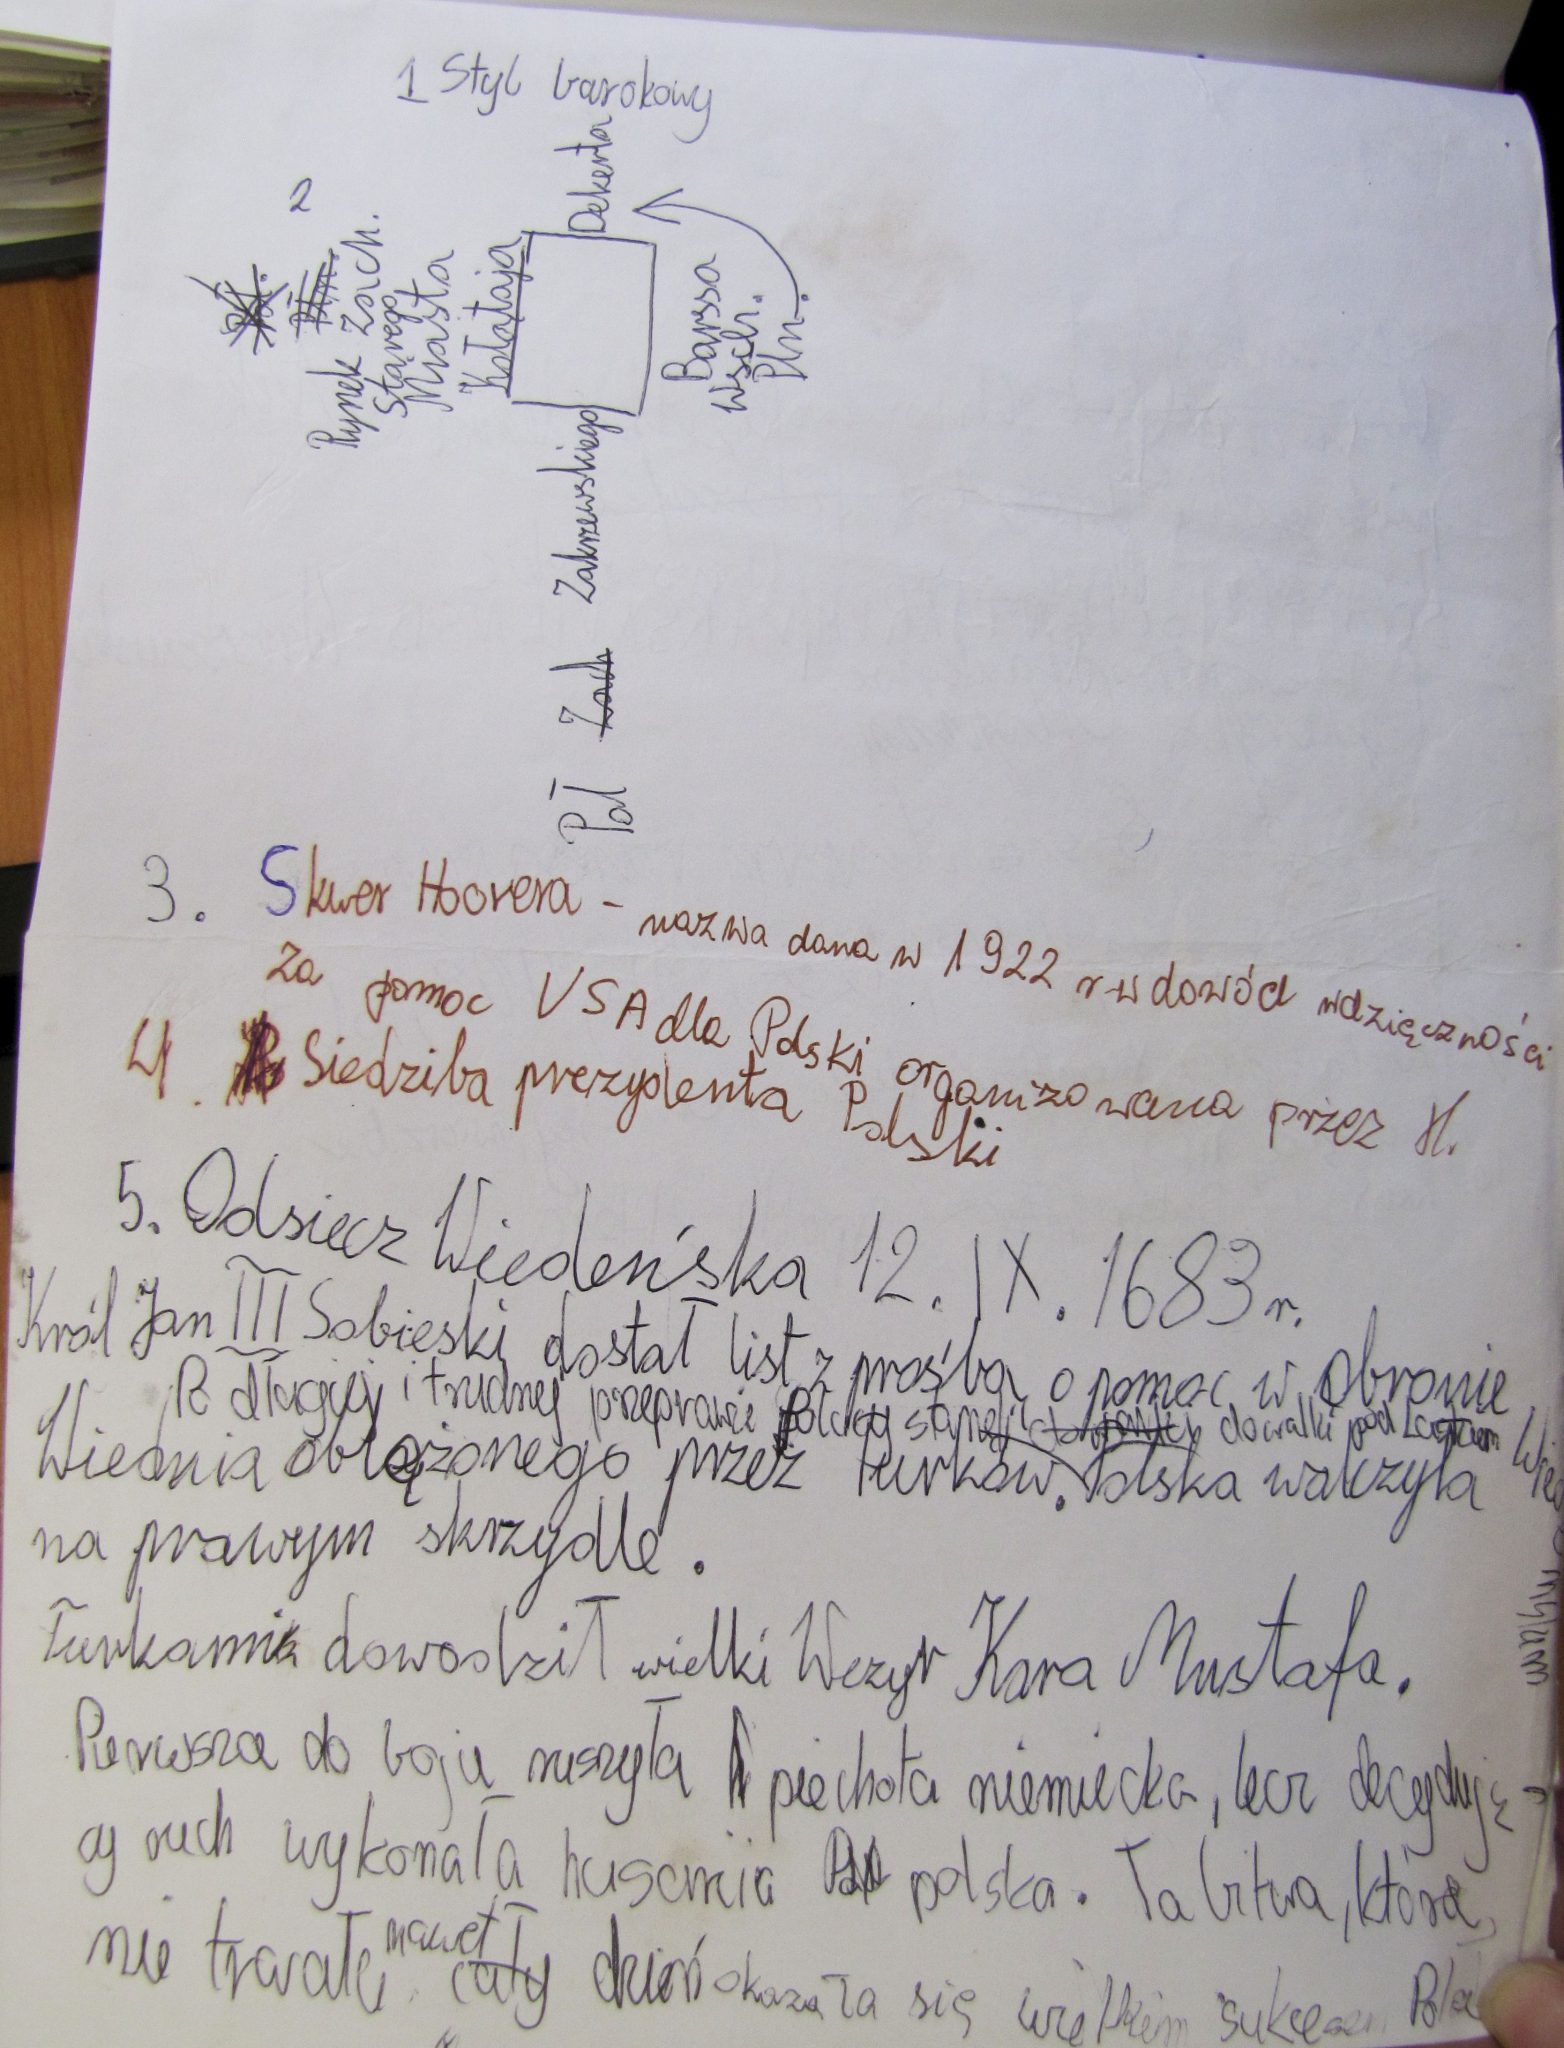 1 Styl barokowy
2
Rynek Zach.
Starego
Miasta
Kołataja
Dekerta
Barssa
Wsch.
Płn.
Zakrzewskiego
Zach
Pał
3. Skwer Hoovera - nazwa dana w 1922 r w dowód wdzięczności
za pomoc USA dla Polski organizowana przez H.
4. Siedziba prezydenta Polski
5. Odsiecz Wiedeńska 12.IX.1683 r.
Król Jan III Sobieski dostał list z prośbą o pomoc w obronie
Po długiej i trudnej przeprawie Polacy stanęli do walki pod
Wiednia oblążonego przez Turków. Polska walczyła
na prawym skrzydle.
Turkami dowodził wielki Wezyr Kara Mustafa.
Pierwsza do boju ruszyła piechota niemiecka, lecz decydują-
cy ruch wykonała husaria polska. Ta bitwa, która
nie trwała nawet cały dzień okazała się wielkim sukcesem